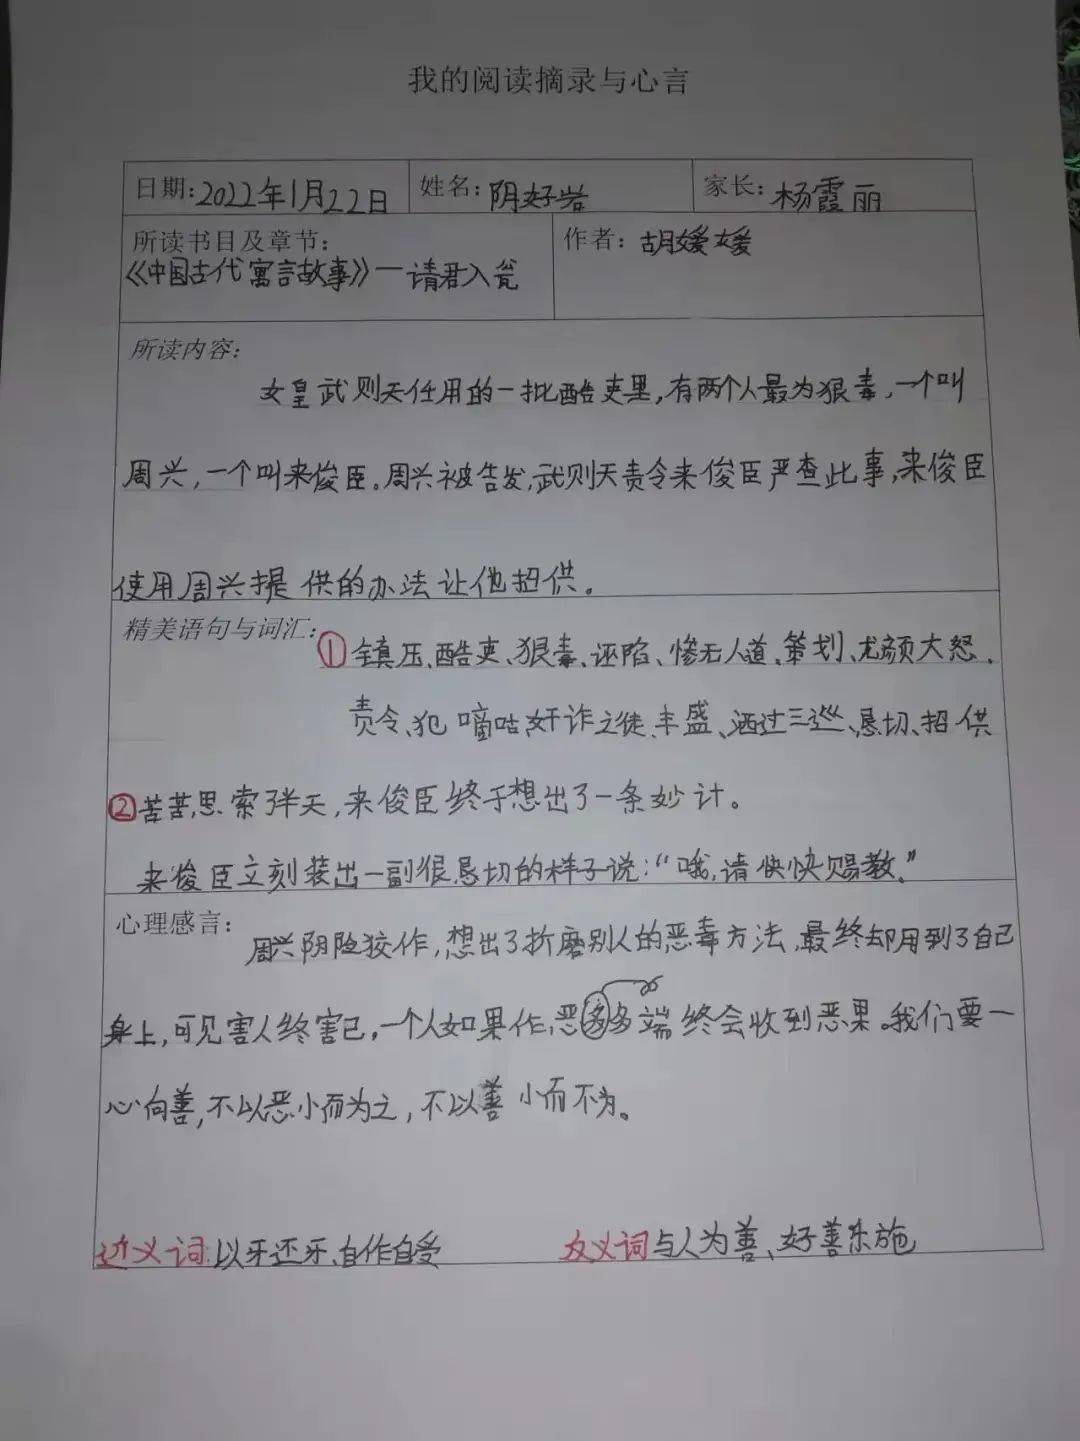 我的阅读摘录与心言
日期:2022年1月22日 姓名:阴好岩 家长:杨霞丽
所读书目及章节: 作者:胡媛媛
《中国古代寓言故事》—请君入瓮
所读内容:
女皇武则天任用的一批酷吏里,有两个人最为狠毒,一个叫
周兴,一个叫来俊臣。周兴被告发,武则天责令来俊臣严查此事,来俊臣
使用周兴提供的办法让他招供。
精美语句与词汇:
①镇压、酷吏、狠毒、诬陷、惨无人道、策划、龙颜大怒、
责令、犯嘀咕奸诈之徒、丰盛、酒过三巡、恳切、招供
②苦苦思索了半天,来俊臣终于想出了一条妙计。
来俊臣立刻装出一副很恳切的样子说:“哦,请快快赐教。”
心理感言:
周兴阴险狡作,想出了折磨别人的恶毒方法,最终却用到了自己
身上,可见害人终害己,一个人如果作恶多端终会收到恶果。我们要一
心向善,不以恶小而为之,不以善小而不为。
近义词:以牙还牙、自作自受 反义词与人为善、好善乐施